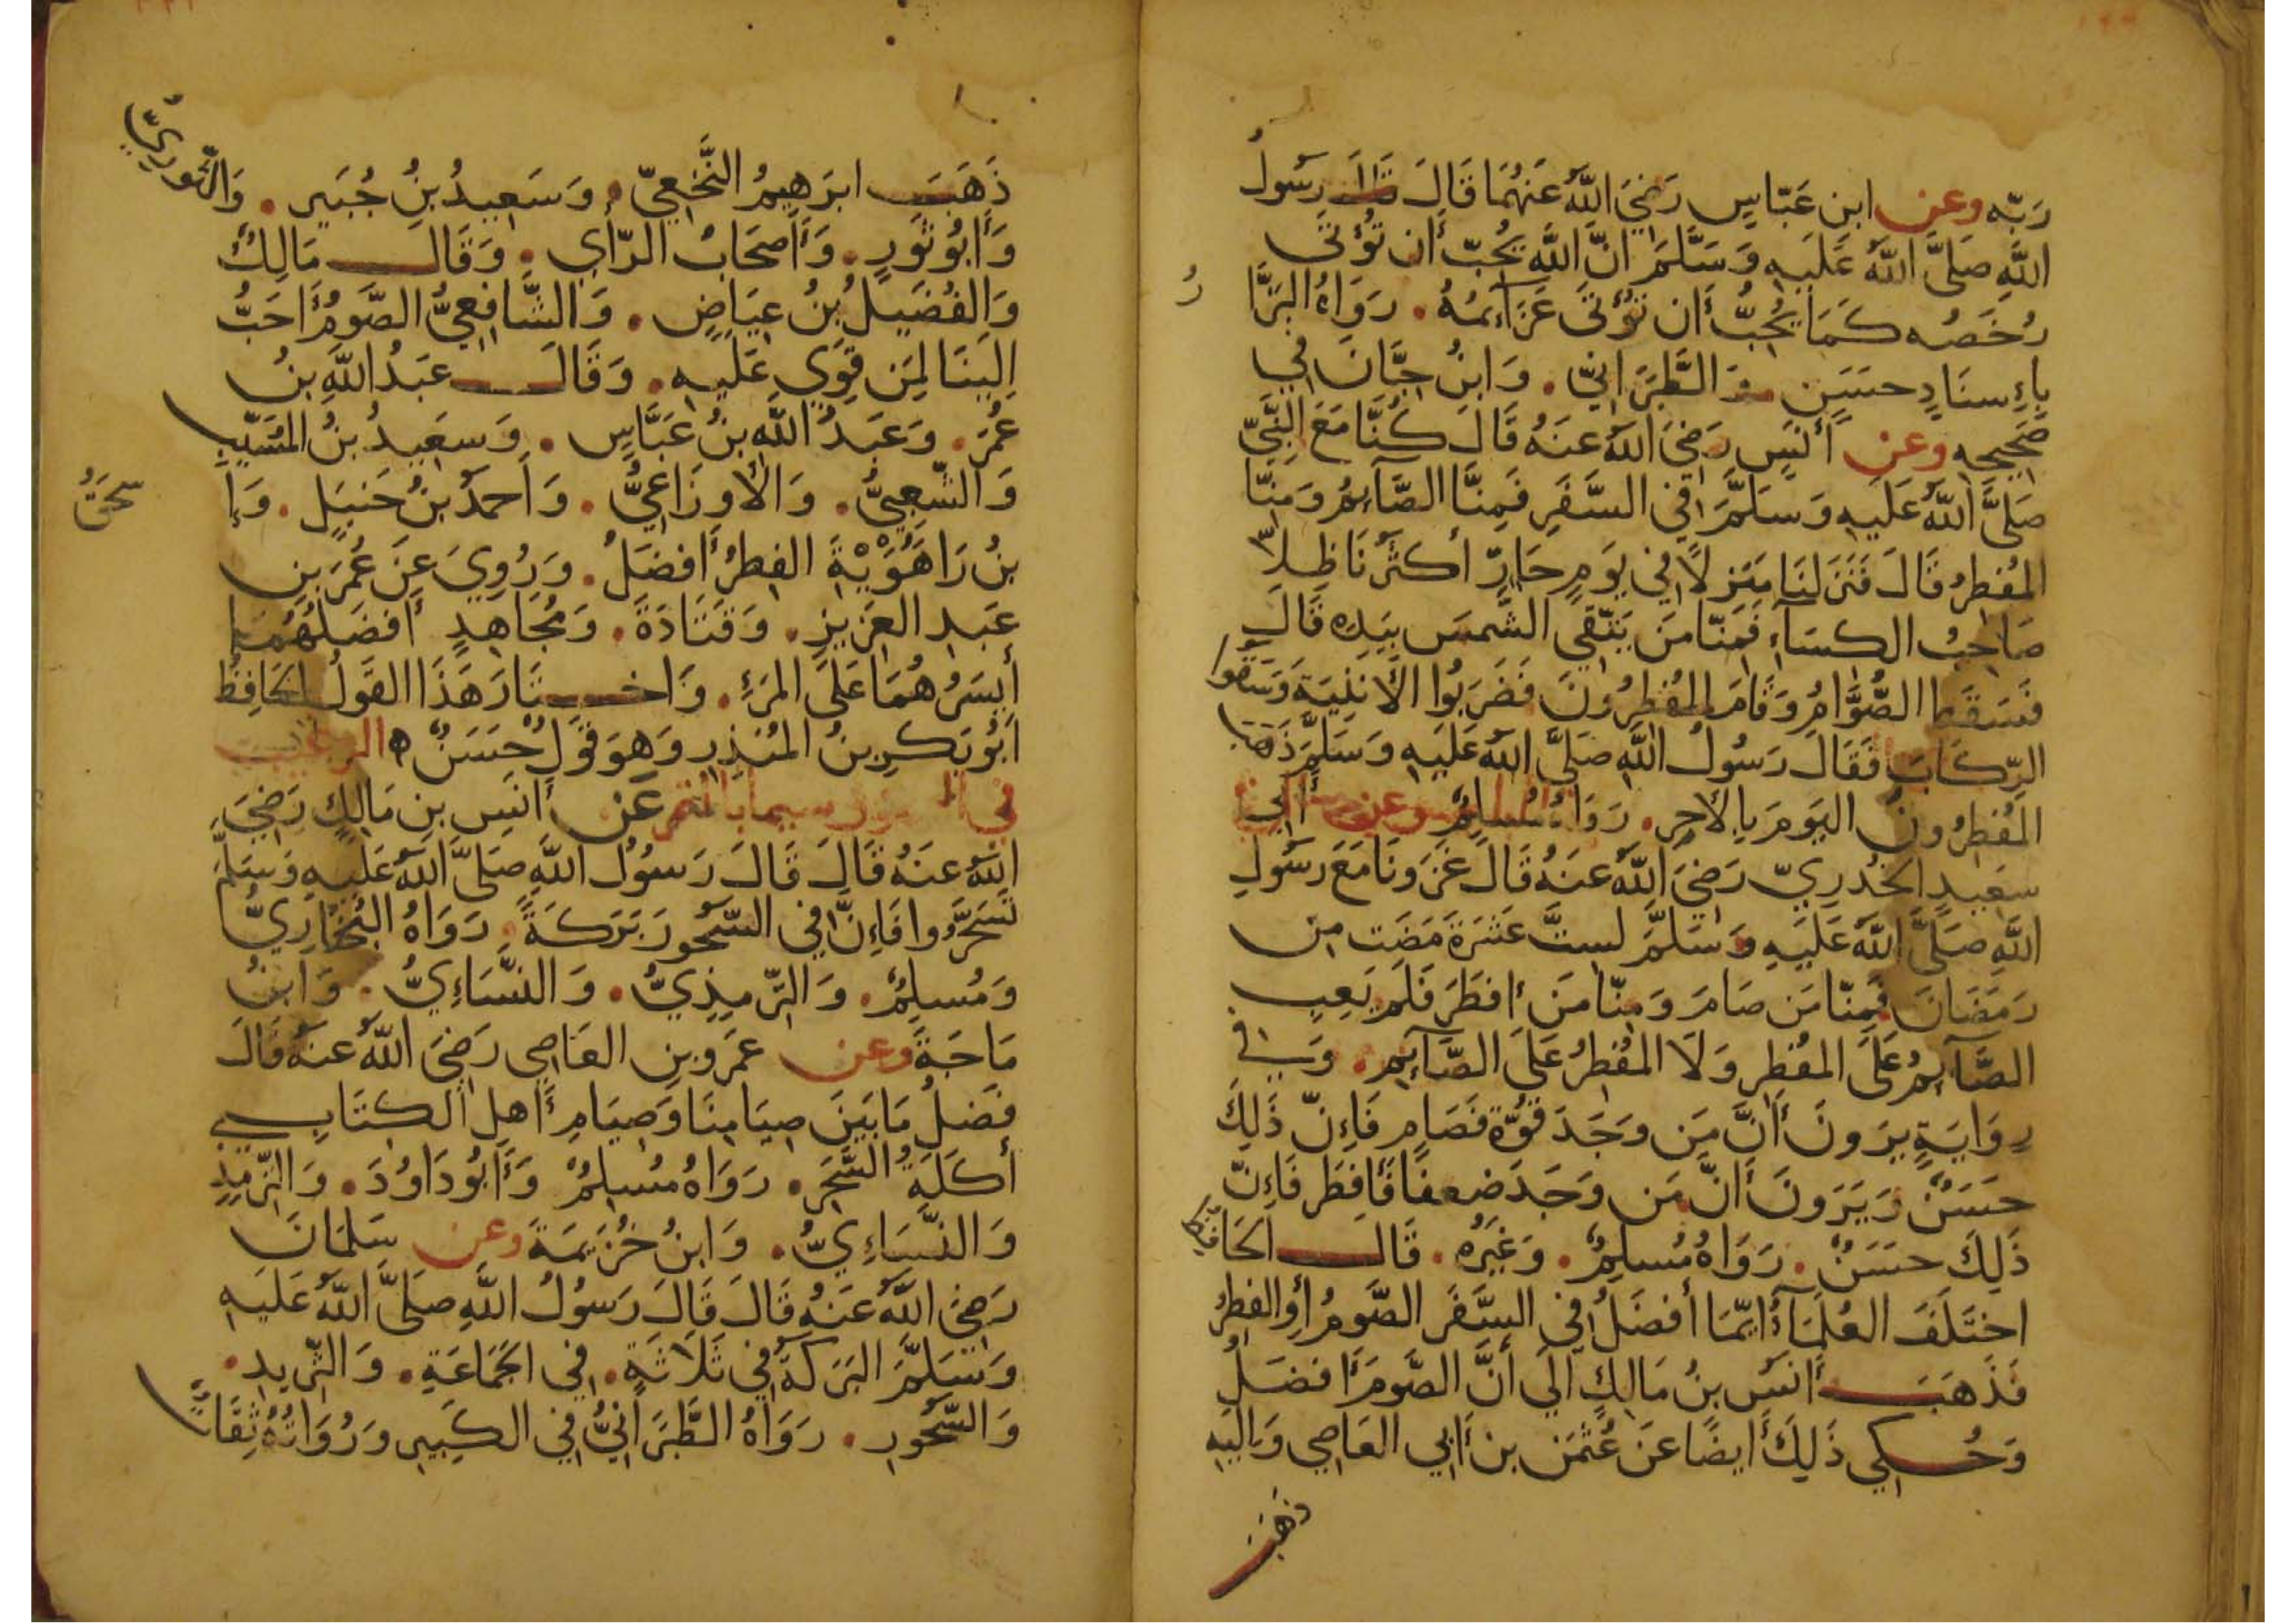 رَبّه وعن ابنِ عَبّاسٍ رَضِيَ اللّٰهُ عَنهُمَا قَالَ قَالَ رَسُولُ
اللَّهِ صَلَّى اللّٰهُ عَلَيهِ وَسَلَّمَ انَّ اللَّهَ يُحِبّ أَن تُؤتَى
رُخَصُه كَمَا يُحِبُّ أَن تُؤتَى عَزَآئِمُهُ. رَوَاهُ البَزَّا
رُ
بِإِسنَادٍ حسَنٍ وَالطَّبَرَانِيّ. وَابنُ حِبَّانَ فِي
صَحِيحِهِ وعن أَنَسٍ رَضِيَ اللّٰهُ عنَهُ قَالَ كُنَّا مَعَ النَّبِيّ
صَلَّى اللّٰهُ عَلَيهِ وَسَلَّمَ فِي السَّفَرِ فَمِنَّا الصَّآئِمُ وَمِنَّا
المُفطِرُ قَالَ فَنَزَلنَا مَنزِلًا فِي يَومٍ حَارٍّ أَكثَرُنَا ظِلاًّ
صَاحِبُ الكسَآءِ فَمِنّا مَن يَتَّقِي الشَّمسَ بِيَدِه قَالَ
فَسَقَطَ الصُّوَّامُ وَقَامَ المُفطِرُونَ فَضَرَبُوا الأَبنِيَةَ وَسَقَوا
الرّكَابَ فَقَالَ رَسُولُ اللَّهِ صَلَّى اللّٰهُ عَلَيهِ وَسَلَّمَ ذَهَبَ
المُفطِرُونَ اليَومَ بِالأَجرِ. رَوَاهُ مُسلِمٌ وعن أَبِي
سَعِيدٍ الخُدرِيّ رَضِيَ اللّٰهُ عنَهُ قَالَ غَزَونَا مَعَ رَسُولِ
اللَّهِ صَلَّى اللّٰهُ عَلَيهِ وَسَلَّمَ لِستَّ عَشَرَةَ مَضَت مِن
رَمَضَانَ فَمِنّا مَن صَامَ وَمِنّا مَن أَفطَرَ فَلَم يَعِبِ
الصَّآئِمُ عَلَى المُفطِرِ وَلَا المُفطِرُ عَلَى الصَّآئِمِ. وَفِي
رِوَايَةٍ يَرَونَ أَنَّ مَن وَجَدَ قُوَّةً فَصَامَ فَإِنّ ذَلِكَ
حسَنٌ وَيَرَونَ أَنَّ مَن وَجَدَ ضعفًا فَأَفطَرَ فَإِنّ
ذَلِكَ حسَنٌ. رَوَاهُ مُسلِمٌ. وَغَيرُه. قَالَ الحَافِظ
اختَلَفَ العُلَمَآءُ أَيّمَا أَفضَلُ فِي السَّفَرِ الصَّومُ أَوِ الفِطرُ
فَذَهَبَ أَنَسُ بنُ مَالِكٍ الَى أَنَّ الصَّومَ أَفضَلُ
وَحُكِي ذَلِكَ أَيضًا عَن عُثمَن بن أَبِي العَاصِي وَالَيهِ
ذهَب
ذَهَبَ ابرَهِيمُ النَّخَعِيّ. وَسَعِيدُ بنُ جُبَيرٍ. وَالثَّورِيّ
وَأَبُو ثَورٍ. وَأَصحَابُ الرّأيِ. وَقَالَ مَالِكٌ
وَالفُضَيلُ بنُ عِيَاضٍ. وَالشَّافِعِيُّ الصَّومُ أَحَبُّ
الَينَا لِمَن قَوِيَ عَلَيهِ. وَقَالَ عبَدُ اللَّهِ بنُ
عُمَرَ. وَعَبَدُ اللَّهِ بنُ عَبَّاسٍ. وَسعَيدُ بنُ المُسَيّبِ
وَالشّعبِيُّ. وَالأَوزَاعِيُّ. وَأَحمَدُ بنُ حَنبَلٍ. وَإِ
سحَقُ
بنُ رَاهَوَيْةَ الفِطرُ أَفضَلُ. وَرُوِيَ عَن عُمَرَ بنِ
عَبدِ العَزِيزِ. وَقَتَادَةَ. وَمُجَاهِدٍ أَفضَلُهُمَا
أَيسَرُهُمَا عَلَى المَرءِ. وَاختَارَ هَذَا القَولَ الحَافِظُ
أَبُو بَكرِ بنُ المُنذِرِ وَهوَ قَولٌ حسَنٌ ه الترغيب
في السحور سيما بالتمر عَن أَنَسِ بنِ مَالِكٍ رَضِيَ
اللّٰهُ عنَهُ قَالَ قَالَ رَسُولُ اللَّهِ صَلَّى اللّٰهُ عَلَيهِ وَسَلَّمَ
تَسَحَّرُوا فَإِنَّ فِي السّحُورِ بَرَكَةً. رَوَاهُ البُخَارِيُّ
وَمُسلِمٌ. وَالتّرمِذِيُّ. وَالنَّسَاءِيُّ. وَابنُ
مَاجَةَ وعن عمَرِو بنِ العَاصِي رَضِيَ اللّٰهُ عنَهُ قَالَ
فَضلُ مَا بَينَ صِيَامِنَا وَصِيَامِ أَهلِ الكِتَابِ
أَكلَةُ السَّحَرِ. رَوَاهُ مُسلِمٌ وَأَبُو دَاوُدَ. وَالتّرمِذِي
وَالنّسَاءِيُّ. وَابنُ خُزَيمَةَ وعن سَلمَانَ
رَضِيَ اللّٰهُ عَنهُ قَالَ قَالَ رَسُولُ اللَّهِ صَلَّى اللّٰهُ عَلَيهِ
وَسَلَّمَ البَرَكَةُ فِي ثَلَاثَةٍ. فِي الجَمَاعَةِ. وَالثّرِيدِ.
وَالسّحُورِ. رَوَاهُ الطَّبَرَانِيُّ فِي الكَبِيرِ وَرُوَاتُهُ ثِقَاتٌ